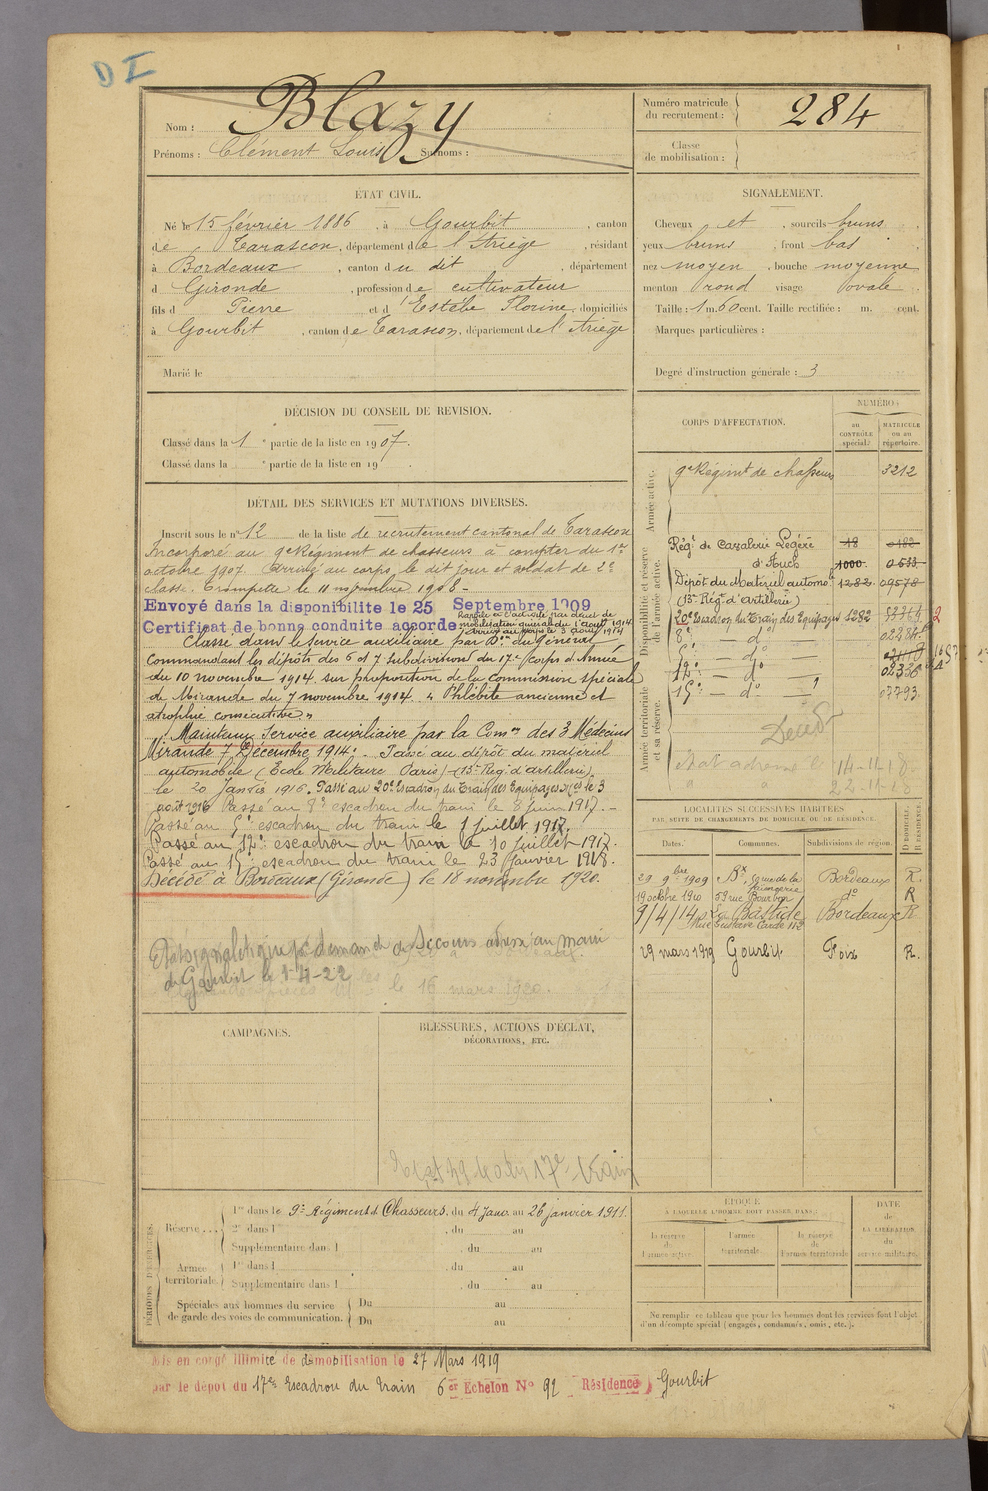 D I
Nom : Blazy
Prénoms : Clément Louis Surnoms :
Numéro matricule
du recrutement : 284
Classe
de mobilisation :
ÉTAT CIVIL.
Né le 15 février 1886, à Gourbit, canton
de Tarascon, département de l'Ariège, résidant
à Bordeaux, canton du dit, département
d Gironde, profession de cultivateur
fils d Pierre et d'Estèbe Florine, domiciliés
à Gourbit, canton de Tarascon, département de l'Ariège
Marié le
SIGNALEMENT.
Cheveux et, sourcils bruns,
yeux bruns, front bas
nez moyen, bouche moyenne
menton rond visage ovale
Taille : 1 m. 60 cent. Taille rectifiée : m. cent.
Marques particulières :
Degré d'instruction générale : 3
DÉCISION DU CONSEIL DE REVISION.
Classé dans la 1e partie de la liste en 1907.
Classé dans la e partie de la liste en 19 .
DÉTAIL DES SERVICES ET MUTATIONS DIVERSES.
Inscrit sous le n° 12 de la liste de recrutement cantonal de Tarascon
Incorporé au 9e Régiment de chasseurs à compter du 1er
octobre 1907. Arrivé au corps le dit jour et soldat de 2e
classe. Trompette le 11 novembre 1908 -
Envoyé dans la disponibilite le 25 Septembre 1909
Certificat de bonne conduite accordé.
Rappelé à l'activité par décret de
mobilisation générale du 1 août 1914
Arrivé au corps le 3 août 1914
Classé dans le service auxiliaire par Don du Général
Commandant les dépôts des 6 et 7 subdivisions du 17e Corps d'Armée
du 10 novembre 1914. sur proposition de la Commission spéciale
de Mirande du 7 novembre 1914. « Phlébite ancienne et
atrophie consécutive »
Maintenu Service auxiliaire par la Comon des 3 Médecins
Mirande 7 Décembre 1914. - Passé au dépôt du matériel
automobile (Ecole Militaire Paris) (13e Rég. d'artillerie)
le 20 Janvier 1916. Passé au 20e Escadron du Train des Equipages le 3
août 1916 Passé au 8e escadron du train le 8 juin 1917. -
Passé au 5e escadron du train le 1 juillet 1917.
Passé au 12e escadron du train le 10 juillet 1917.
Passé au 15e escadron du train le 23 Janvier 1918.
Décédé à Bordeaux (Gironde) le 18 novembre 1920.
Etat signalétique demande de Secours adressé au maire
de Gourbit le 1-4-22
le 16 mars 1920.
CORPS D'AFFECTATION.
NUMÉRO
au
CONTRÔLE
spécial.
MATRICULE
ou au
répertoire.
Armée active.
9e Régiment de chasseurs 3212
Disponibilité et réserve
de l'armée active.
Régt de Cavalerie Légère 18 0182
d'Auch 1000 0533
Dépôt du Matériel automobe 1282 09578
(13e Régt d'artillerie)
20e Escadron du Train des Equipages 1282
8e d°
5e - d° -
12e - d° -
15e - d° - 07793
Armée territoriale
et sa réserve.
Décédé
Etat adressé le 14-11-18
" " 22-11-28
LOCALITÉS SUCCESSIVES HABITÉES
PAR SUITE DE CHANGEMENTS DE DOMICILE OU DE RÉSIDENCE.
Dates. Communes. Subdivisions de région. D DOMICILE. R RÉSIDENCE.
29 9bre 1909 Bx Bordeaux R
19 octobre 1910 59 rue Bourbon d° R
9/4/14 La Bastide Bordeaux R
29 mars 1919 Gourbit Foix R.
CAMPAGNES.
BLESSURES, ACTIONS D'ÉCLAT,
DÉCORATIONS, ETC.
PÉRIODES D'EXERCICES.
Réserve ....
1re dans le 9e Régiment de Chasseurs, du 4 Janv. au 26 janvier 1911.
2e dans l , du au
Supplémentaire dans l , du au
Armée
territoriale.
1re dans l , du au
Supplémentaire dans l , du au
Spéciales aux hommes du service
de garde des voies de communication.
Du au
Du au
ÉPOQUE
À LAQUELLE L'HOMME DOIT PASSER DANS :
la réserve
de
l'armée active
l'armée
territoriale.
la réserve
de
l'armée territoriale
DATE
de
LA LIBÉRATION
du
service militaire.
Ne remplir ce tableau que pour les hommes dont les services font l'objet
d'un décompte spécial (engagés, condamnés, omis, etc.).
Mis en congé illimité de démobilisation le 27 Mars 1919
par le dépôt du 17e Escadron du Train 6e Echelon N° 92 Résidence Gourbit